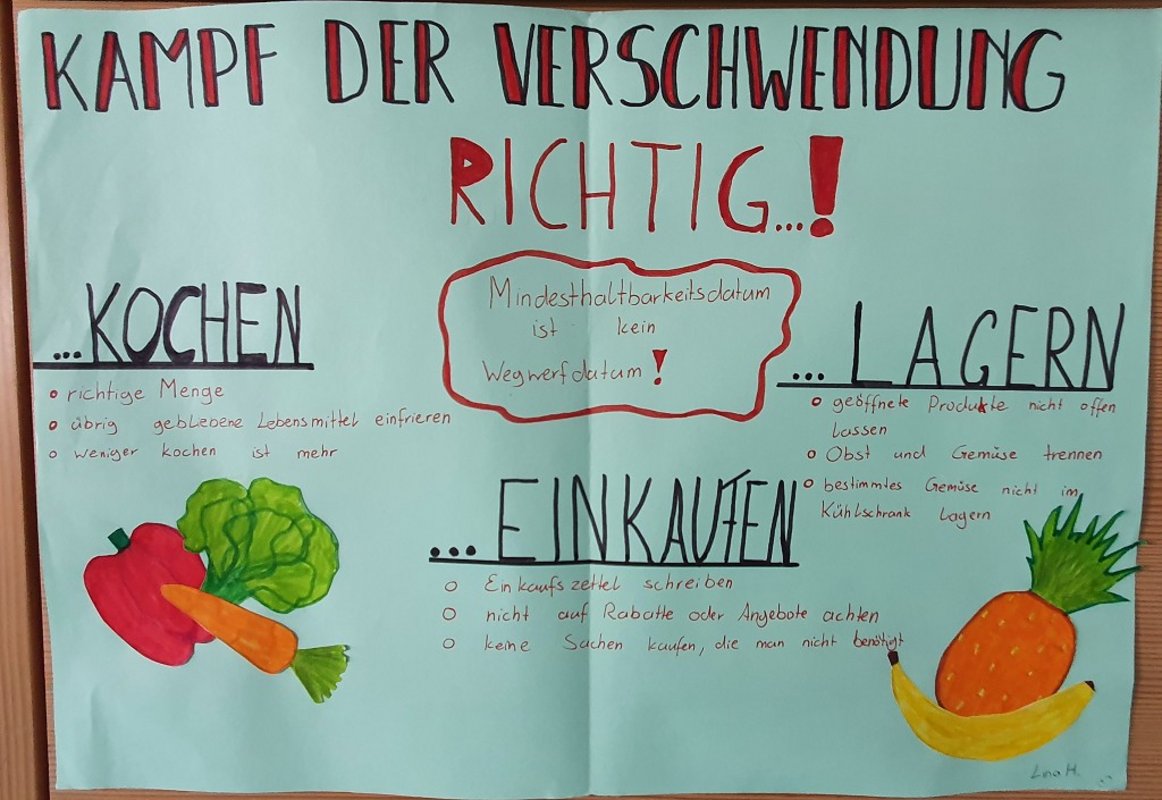 KAMPF DER VERSCHWENDUNG
RICHTIG...!
Mindesthaltbarkeitsdatum
ist kein
Wegwerfdatum!
...KOCHEN
richtige Menge
übrig geblebene Lebensmittel einfrieren
weniger kochen ist mehr
...LAGERN
geöffnete Produkte nicht offen
lassen
Obst und Gemüse trennen
bestimmtes Gemüse nicht im
Kühlschrank lagern
...EINKAUFEN
Einkaufszettel schreiben
nicht auf Rabatte oder Angebote achten
keine Sachen kaufen, die man nicht benötigt
Lina H.